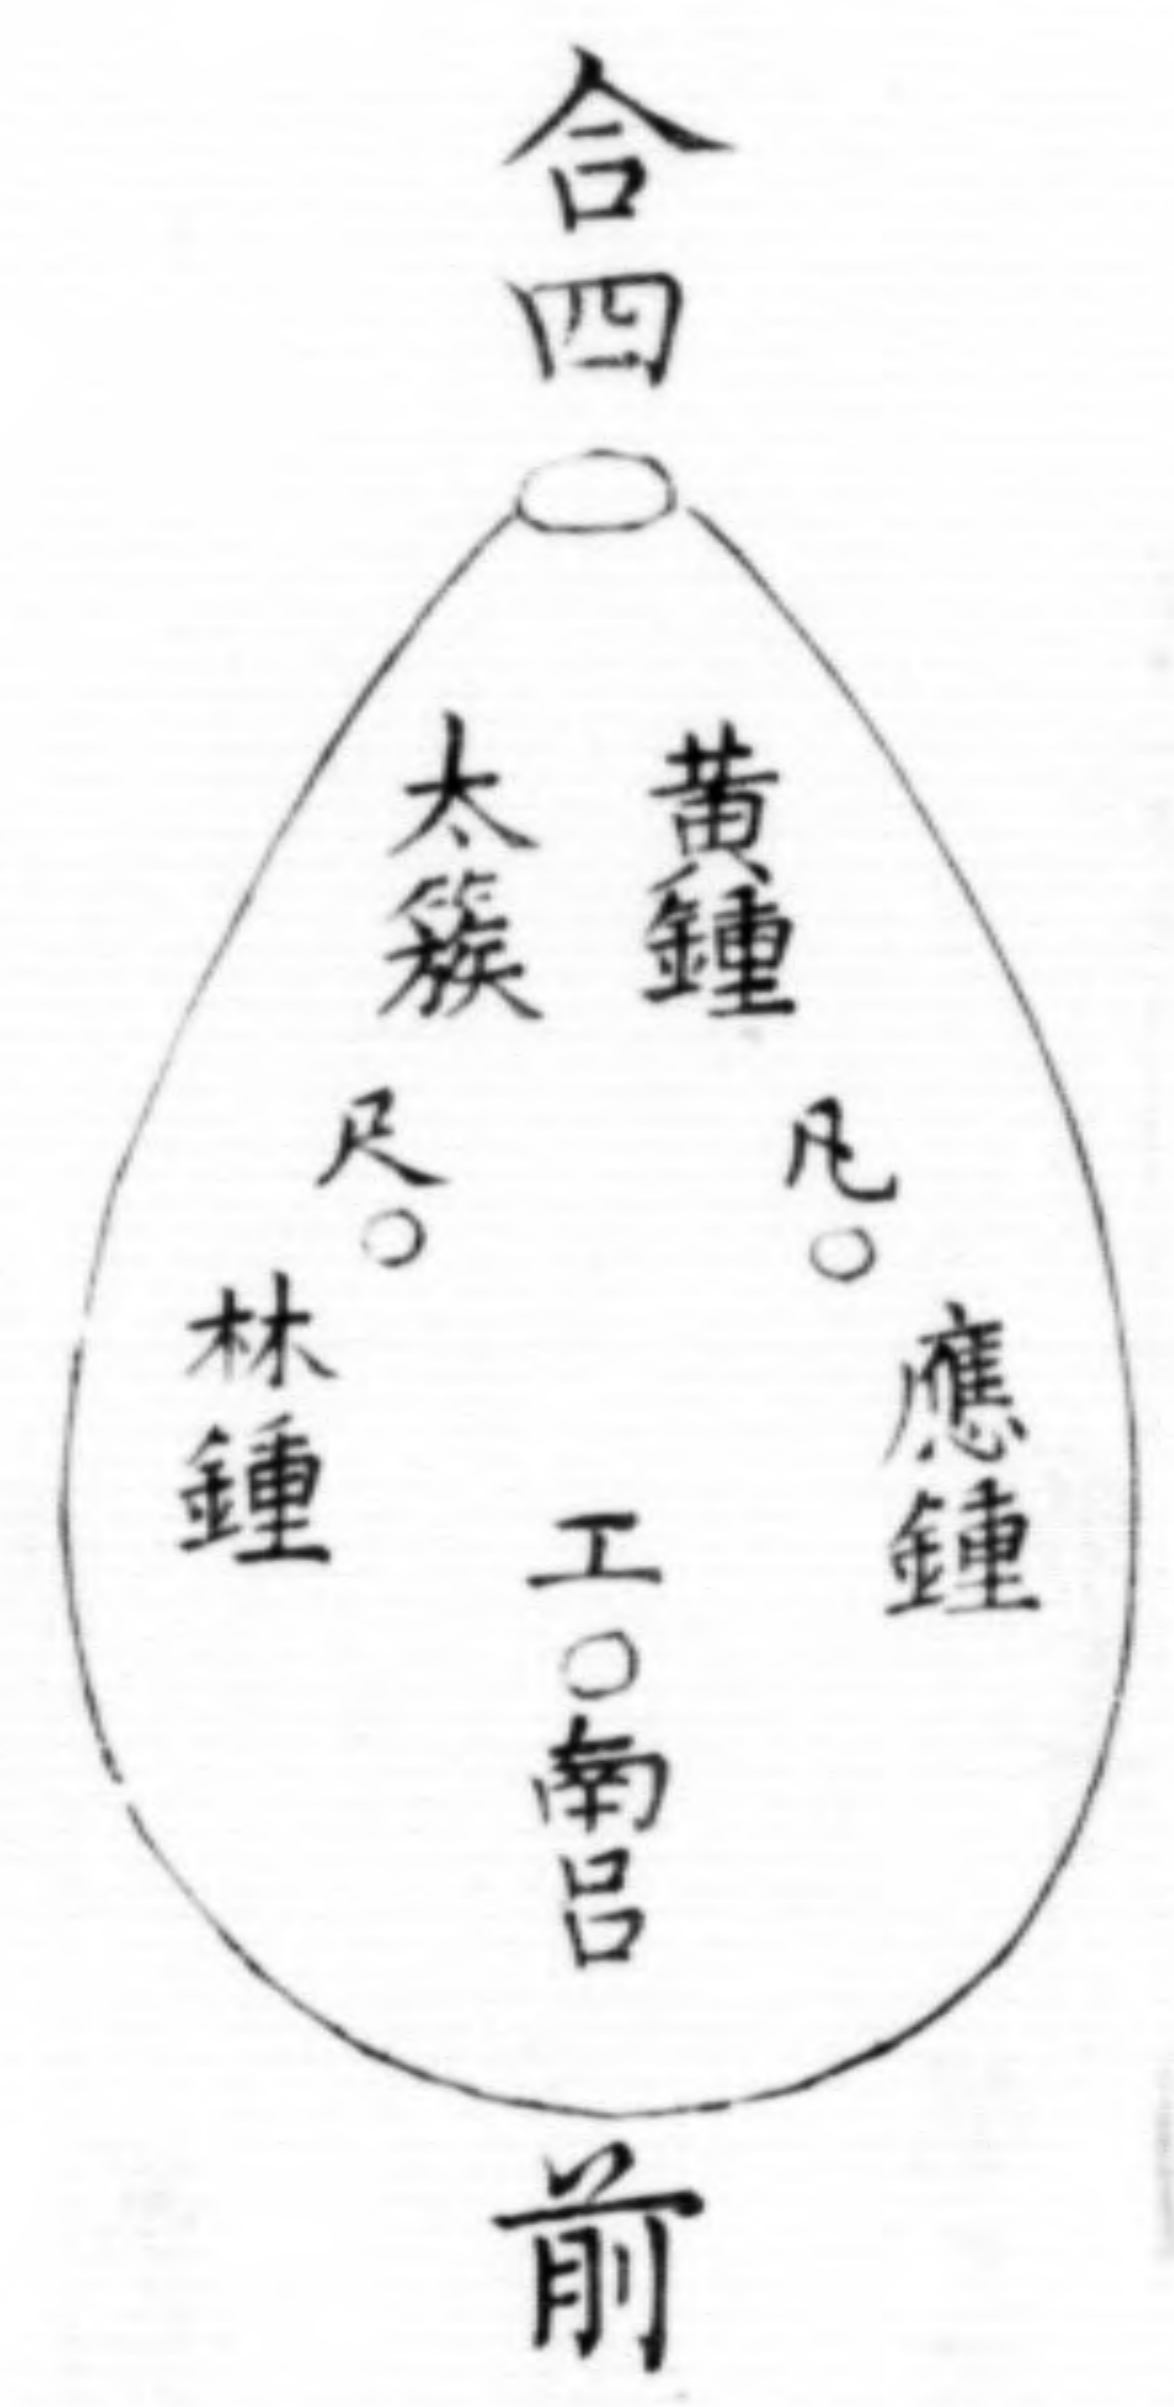 合四
黃鍾
太簇
凡
尺
應鍾
林鍾
工
南呂
前